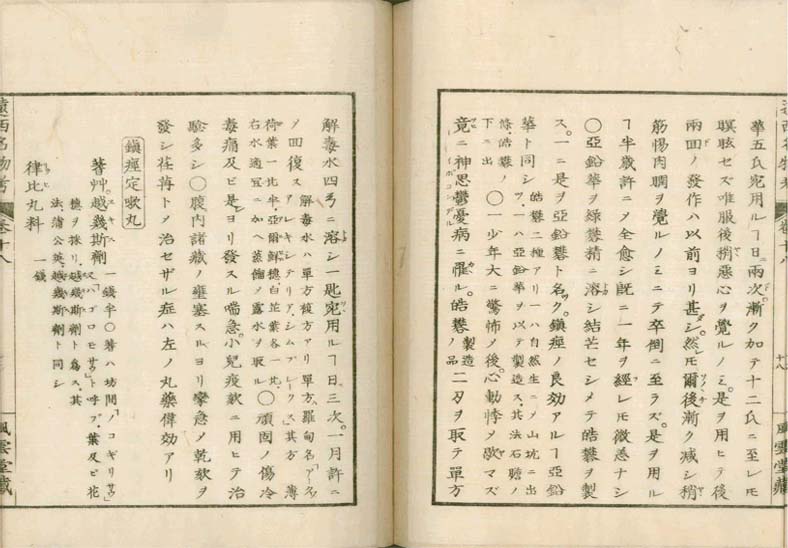 華五氏宛用ルヿ日兩次漸ク加テ十二氏ニ至レモ
瞑眩セズ唯服後稍惡心ヲ覺ルノミ是ヲ用ヒテ後
兩回ノ發作ハ以前ヨリ甚ダシ然レモ爾後漸ク减シ稍
筋惕肉瞤ヲ覺ルノミニテ卒倒ニ至ラズ是ヲ用ル
ヿ半歳許ニメ全愈シ既ニ一年ヲ經レモ微恙ナシ
〇亞鉛華ヲ綠礬精ニ溶シ結芒セシメテ皓礬ヲ製
ス一ニ是ヲ亞鉛礬ト名ク鎮痙ノ良効アルヿ亞鉛
華ト同シ 皓礬二種アリ一ハ自然生ニメ山坑ニ出
ヅ一ハ亞鉛華ヲ以テ製造ス其法石膽ノ
條皓礬ノ
下ニ出 〇一少年大ニ驚怖メ後心動悸メ歇マズ
竟ニ神思鬱憂病ニ罹ル皓礬 製造
ノ品 二刄ヲ取テ單方
十八
風雲堂藏
遠西名物考
卷十八
解毒水四弓ニ溶シ一匙宛用ルヿ日三次一月許ニ
ノ回復ス 解毒水ハ單方複方アリ單方羅甸名アーク
アルキシテリア シムプレークス其方 薄
荷葉一比半亞爾鮮穗白芷葉各一比
右水適宜ニ加ヘ蒸餾メ露水ヲ取ル 〇頑固ノ傷冷
毒痛及ビ是ヨリ發スル喘急小兒痰欬ニ用ヒテ治
驗多シ〇腹内諸藏ノ壅塞スルヨリ攣急ノ乾欬ヲ
發シ荏苒トメ治セザル症ハ左ノ丸藥偉効アリ
鎮痙定嗽丸
蓍艸越幾斯劑 一錢半〇蓍ハ坊間ノコギリサウ
又ハゴロモサウト呼ブ葉及ビ花
穗ヲ採リ越幾斯劑ト爲ス其
法蒲公英越幾斯劑ト同シ
律比丸料 一錢
風雲堂藏